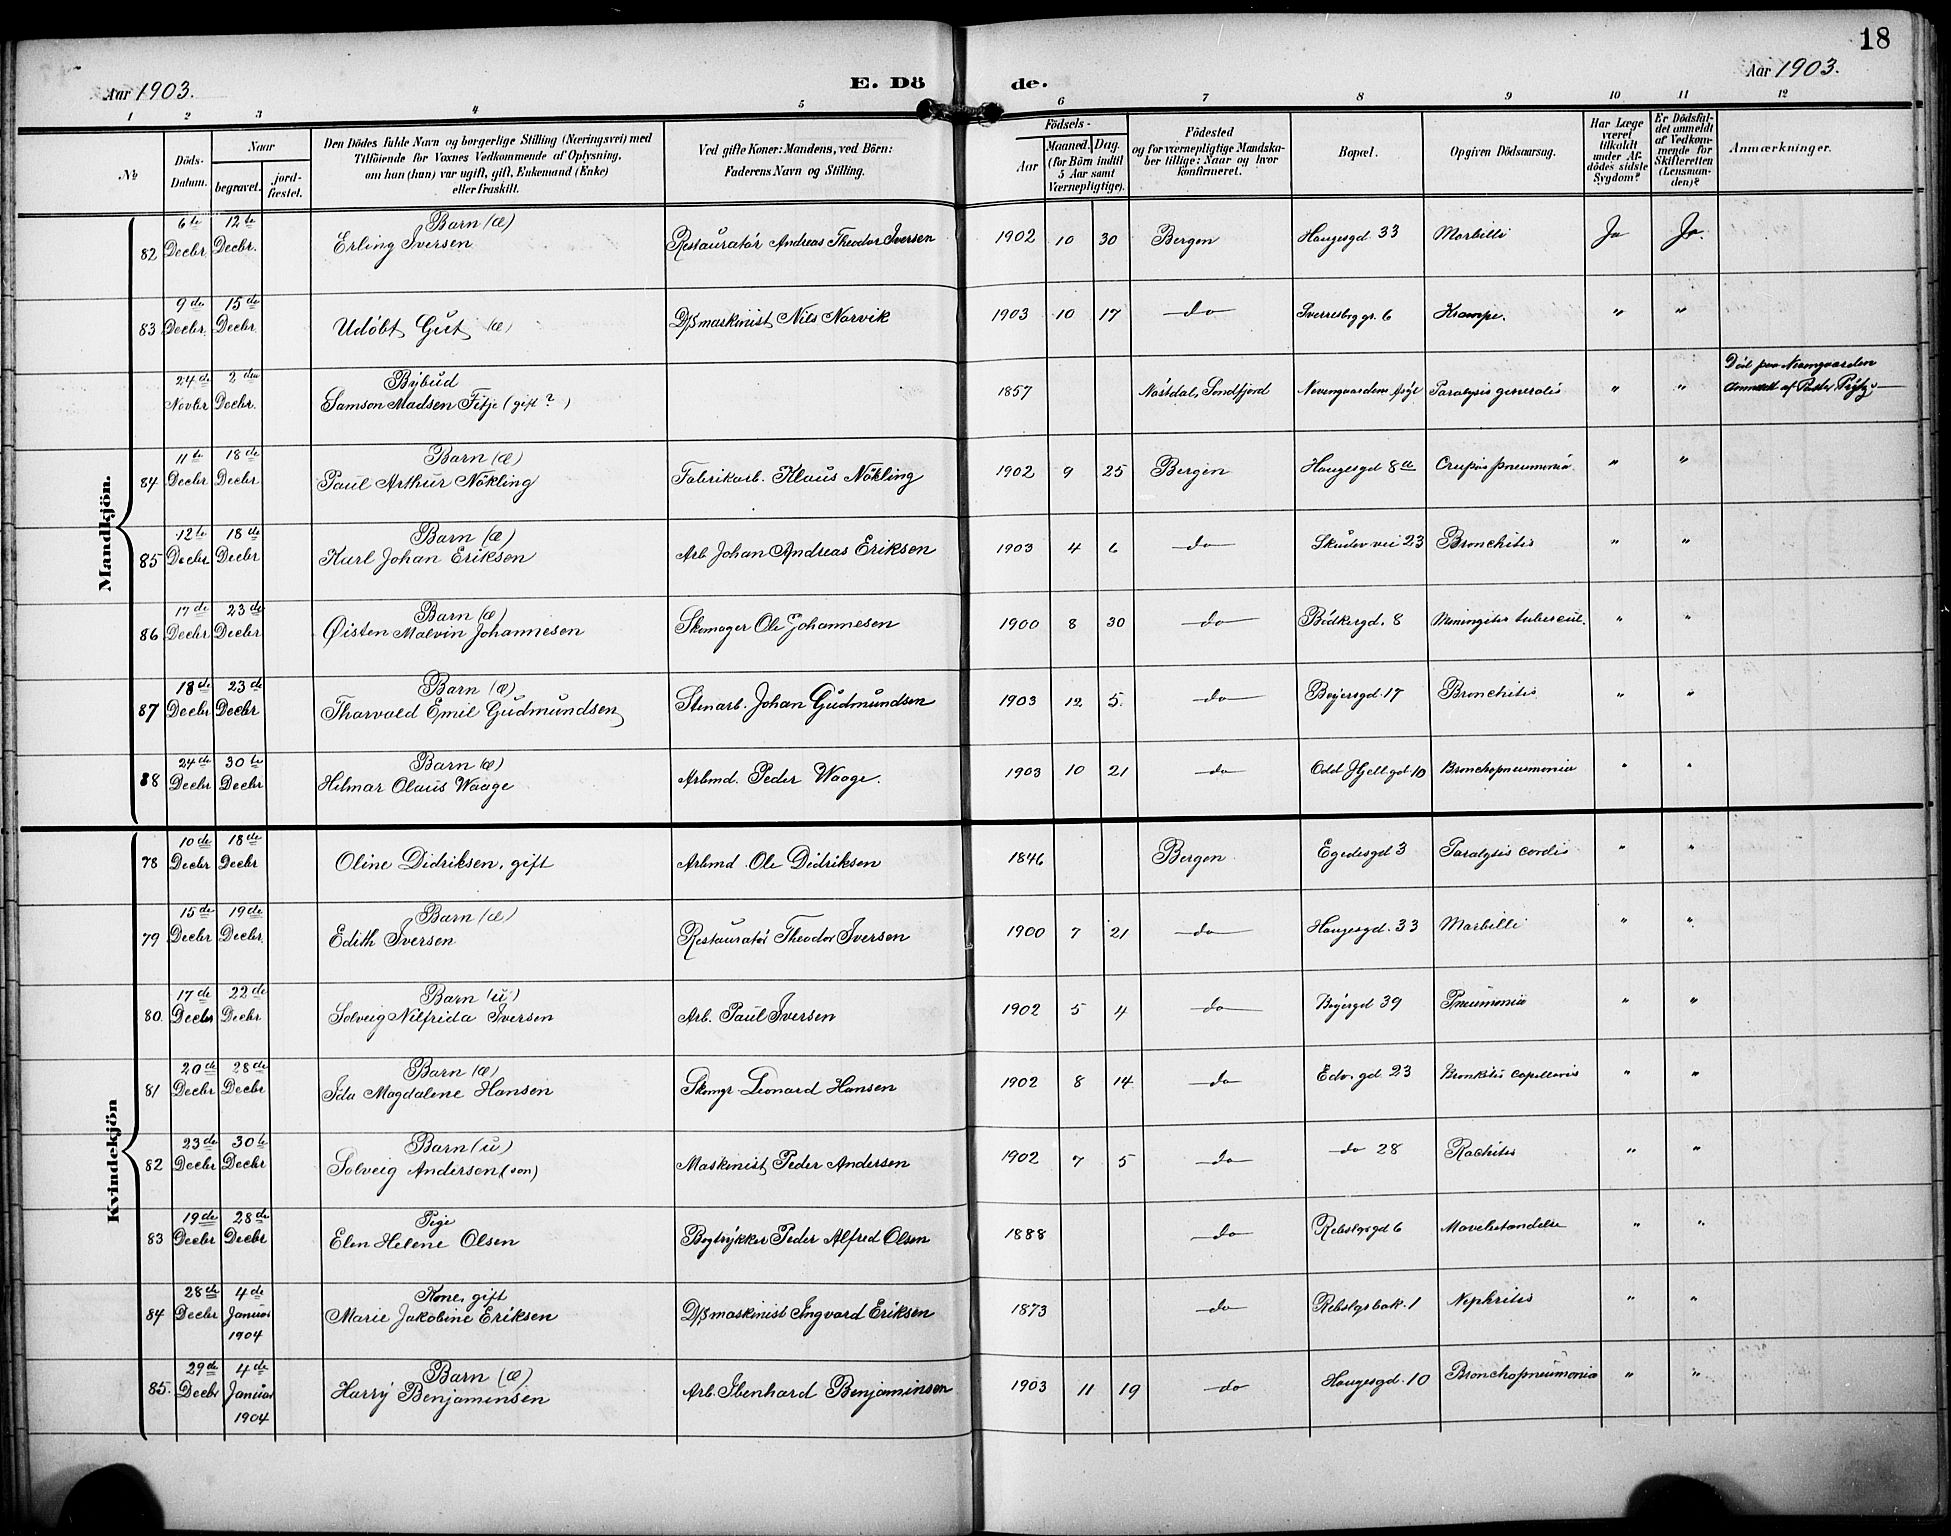 18
Aar 1903.
E. Dö de.
Aar 1903.
1 2 3 4 5 6 7 8 9 10 11 12
No
Döds-Datum.
Naar
begravet.
jord-fæstet.
Den Dödes fulde Navn og borgerlige Stilling (Næringsvei) med
Tilföiende for Voxnes Vedkommende af Oplysning,
om han (hun) var ugift, gift, Enkemand (Enke)
eller fraskilt.
Ved gifte Koner: Mandens, ved Börn:
Faderens Navn og Stilling.
Födsels-
Aar
Maaned. Dag.
(for Börn indtil
5 Aar samt
Værnepligtige).
Födested
og for værnepligtige Mandskaber tillige: Naar og hvor
konfirmeret.
Bopæl.
Opgiven Dödsaarsag.
Har Læge
været
tilkaldt
under Afdödes sidste
Sygdom?
Er Dödsfaldet anmeldt
af Vedkommende for
Skifteretten
(Lensmanden)?
Anmærkninger.
Mandkjön.
82 6te Decbr 12te Decbr. Barn (æ) Erling Iversen Restauratør Andreas Theodor Iversen 1902 10 30 Bergen Haugesgd 33 Morbilli Ja Ja.
83 9de Decbr. 15de Decbr. Udöbt Gut (æ) D/S maskinist Nils Narvik 1903 10 17 do Sverresbg gr. 6 Krampe. " "
24de Novbr 2den Decbr. Bybud Samson Madsen Fitje (gift?) 1857 Nøstdal, Søndfjord Neevengaardens Asyl Paralysis generalis " " Död paa Neevengaarden Anmeldt af Pastor
84 11te Decbr 18de Decbr Barn (æ) Paul Arthur Nökling Fabrikarb. Klaus Nökling 1902 9 25 Bergen Haugesgd 8a Crupøs pneumonia " "
85 12te Decbr 18de Decbr Barn (æ) Karl Johan Eriksen Arb. Johan Andreas Eriksen 1903 4 6 do Skudev vei 23 Bronchitis " "
86 17de Decbr 23de Decbr Barn (æ) Øisten Malvin Johannesen Skomager Ole Johannesen 1900 8 30 do Bödkergd. 8 Meningitis tubercul. " "
87 18de Decbr 23de Decbr Barn (æ) Tharvald Emil Gudmundsen Stenarb. Johan Gudmundsen 1903 12 5. do Bøjersgd. 17 Bronchitis " "
88 24de Decbr 30te Decbr Barn (æ) Hilmar Olaus Waage Arbmd. Peder Waage. 1903 10 21 do Odd Hjeltgd 10 Bronchopneumonia " "
Kvindekjön
78 10de Decbr 18de Decbr Oline Didriksen, gift Arbmd. Ole Didriksen 1846 Bergen Egedesgd 3 Paralysis cordis " "
79 15de Decbr 19de Decbr. Barn (æ) Edith Iversen Restauratør Theodor Iversen 1900 7 21 do Haugesgd. 33 Morbilli " "
80. 17de Decbr 22de Decbr Barn (u) Solveig Nilfrida Iversen Arb. Paul Iversen 1902 5 4 do Bøjersgd 39 Pneumonia " "
81 20de Decbr 28de Decbr Barn (æ) Ida Magdalene Hansen Skomgr. Leonard Hansen 1902 8 14 do Edv. gd. 23 Bronkitis capillaris " "
82 23de Decbr 30te Decbr Barn (u) Solveig Andersen (son) Maskinist Peder Andersen 1902 7 5 do do 28 Rachitis " "
83 19de Decbr 28de Decbr Pige Elen Helene Olsen Bogtrykker Peder Alfred Olsen 1888 do Rebslgsgd 6 Mavebetændelse " "
84 28de Decbr 4de Januar 1904 Kone, gift Marie Jakobine Eriksen D/S maskinist Ingvard Eriksen 1873 do Rebslgsbak. 1 Nephritis " "
85. 29de Decbr 4de Januar 1904 Barn (æ) Harry Benjaminsen Arb. Ibenhard Benjaminsen 1903 11 19 do Haugesgd. 10 Bronchopneumonia " "